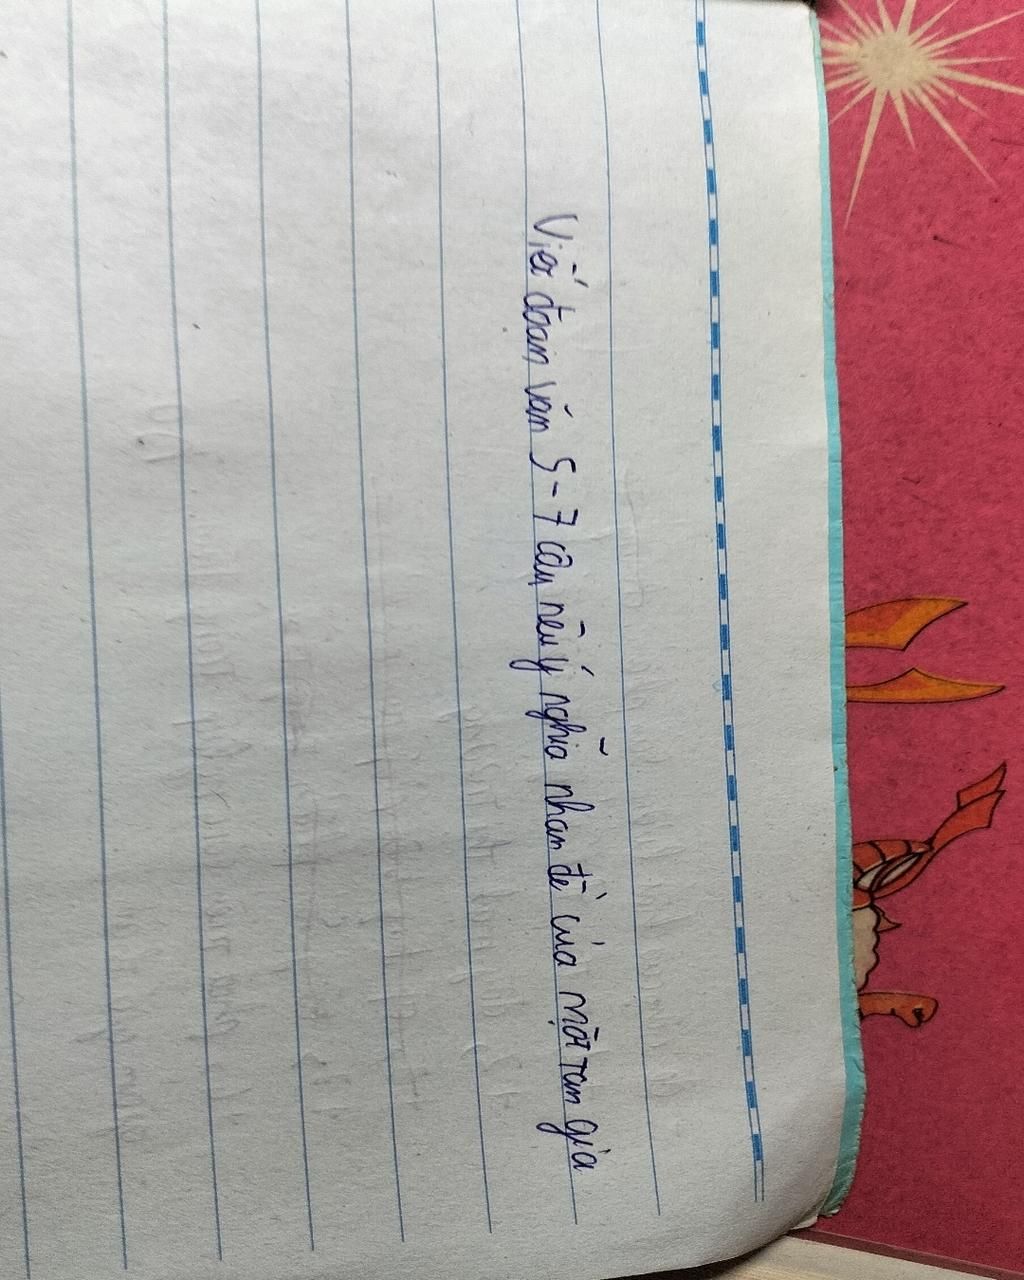 Viết đoạn văn 5-7 câu nêu ý nghĩa nhan đề của một tam giá